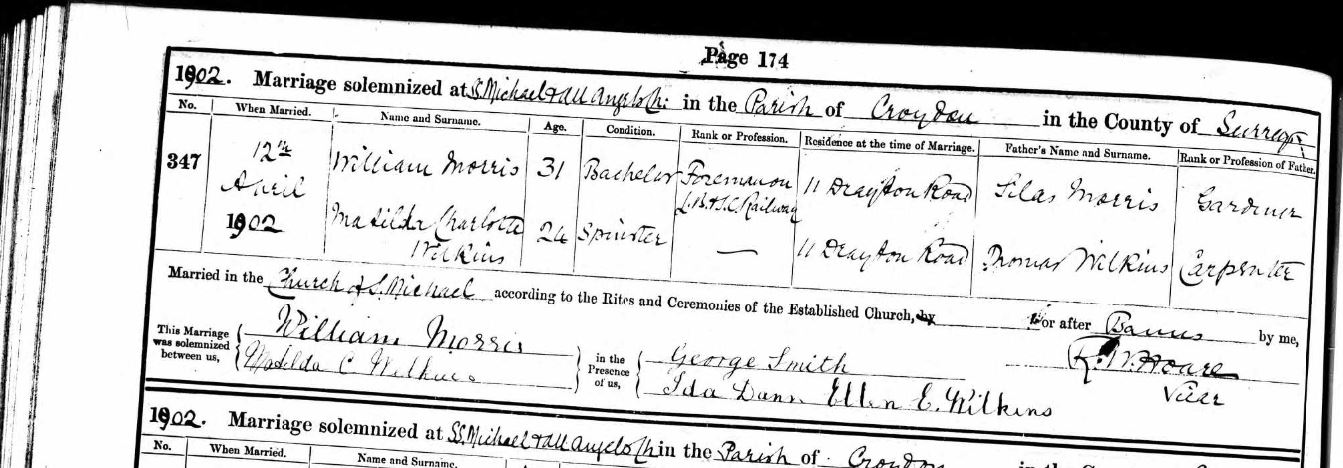 Page 174
1902. Marriage solemnized at S. Michael & All Angels Ch: in the Parish of Croydon in the County of Surrey
No. When Married. Name and Surname. Age. Condition. Rank or Profession. Residence at the time of Marriage. Father's Name and Surname. Rank or Profession of Father.
347 12th April 1902 William Morris 31 Bachelor Foreman on L.B.&S.C. Railway 11 Drayton Road Silas Morris Gardiner
Matilda Charlotte Wilkins 24 Spinster — 11 Drayton Road Thomas Wilkins Carpenter
Married in the Church of S. Michael according to the Rites and Ceremonies of the Established Church, by or after Banns by me,
This Marriage was solemnized between us, William Morris in the Presence of us, George Smith R. W. Hoare
Matilda C Wilkins Ida Dann Ellen E. Wilkins Vicar
1902. Marriage solemnized at SS. Michael & All Angels Ch in the Parish of Croydon
No. When Married. Name and Surname.